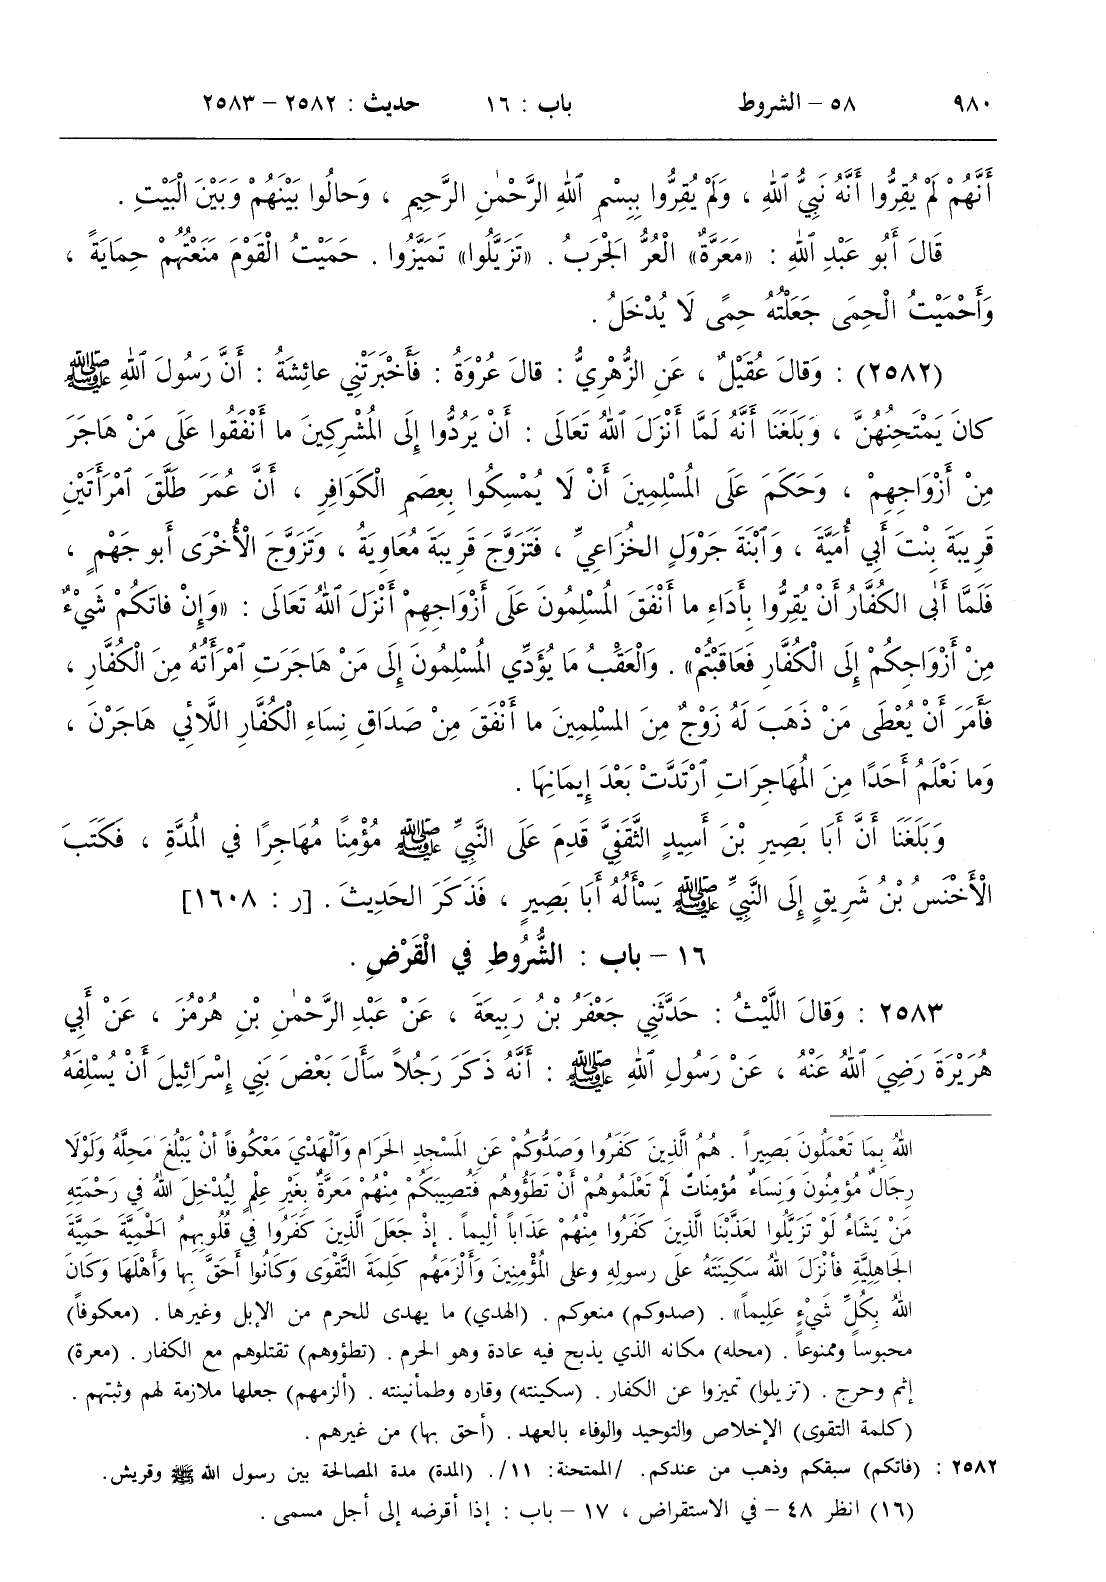 ٩٨٠ ٥٨ – الشروط باب : ١٦ حديث : ٢٥٨٢ – ٢٥٨٣
أَنَّهُمْ لَمْ يُقِرُّوا أَنَّهُ نَبِيُّ ٱللهِ ، وَلَمْ يُقِرُّوا بِبِسْمِ ٱللهِ الرَّحْمٰنِ الرَّحِيمِ ، وَحالُوا بَيْنَهُمْ وَبَيْنَ الْبَيْتِ .
قَالَ أَبُو عَبْدِ ٱللهِ : «مَعَرَّةٌ» الْعُرُّ الجَرَبُ . «تَزَيَّلُوا» تَمَيَّزُوا . حَمَيْتُ الْقَوْمَ مَنَعْتُهُمْ حِمايَةً ،
وَأَحْمَيْتُ الْحِمَى جَعَلْتُهُ حِمًى لَا يُدْخَلُ .
(٢٥٨٢) : وَقالَ عُقَيْلٌ ، عَنِ الزُّهْرِيُّ : قالَ عُرْوَةُ : فَأَخْبَرَتْنِي عائِشَةُ : أَنَّ رَسُولَ ٱللهِ ﷺ
كانَ يَمْتَحِنُهُنَّ ، وَبَلَغَنَا أَنَّهُ لَمَّا أَنْزَلَ ٱللهُ تَعَالَى : أَنْ يَرُدُّوا إِلَى المُشْرِكِينَ ما أَنْفَقُوا عَلَى مَنْ هَاجَرَ
مِنْ أَزْوَاجِهِمْ ، وَحَكَمَ عَلَى المُسْلِمِينَ أَنْ لَا يُمْسِكُوا بِعِصَمِ الْكَوَافِرِ ، أَنَّ عُمَرَ طَلَّقَ ٱمْرَأَتَيْنِ
قَرِيبَةَ بِنْتَ أَبِي أُمَيَّةَ ، وَٱبْنَةَ جَرْوَلٍ الخُزَاعِيِّ ، فَتَزَوَّجَ قَرِيبَةَ مُعَاوِيَةُ ، وَتَزَوَّجَ الْأُخْرَى أَبو جَهْمٍ ،
فَلَمَّا أَبَى الْكُفَّارُ أَنْ يُقِرُّوا بِأَدَاءِ ما أَنْفَقَ المُسْلِمُونَ عَلَى أَزْوَاجِهِمْ أَنْزَلَ ٱللهُ تَعَالَى : «وَإِنْ فاتَكُمْ شَيْءٌ
مِنْ أَزْوَاجِكُمْ إِلَى الْكُفَّارِ فَعَاقَبْتُمْ» . وَالْعَقْبُ مَا يُؤَدِّي المُسْلِمُونَ إِلَى مَنْ هَاجَرَتِ ٱمْرَأَتُهُ مِنَ الْكُفَّارِ ،
فَأَمَرَ أَنْ يُعْطَى مَنْ ذَهَبَ لَهُ زَوْجٌ مِنَ المسْلِمِينَ ما أَنْفَقَ مِنْ صَدَاقِ نِسَاءِ الْكُفَّارِ اللَّائِي هَاجَرْنَ ،
وَما نَعْلَمُ أَحَدًا مِنَ المُهَاجِرَاتِ ٱرْتَدَّتْ بَعْدَ إِيمَانِهَا .
وَبَلَغَنَا أَنَّ أَبَا بَصِيرِ بْنَ أَسِيدٍ الثَّقَفِيَّ قَدِمَ عَلَى النَّبِيِّ ﷺ مُؤْمِنًا مُهَاجِرًا فِي المُدَّةِ ، فَكَتَبَ
الْأَخْنَسُ بْنُ شَرِيقٍ إِلَى النَّبِيِّ ﷺ يَسْأَلُهُ أَبَا بَصِيرٍ ، فَذَكَرَ الحَدِيثَ . [ر : ١٦٠٨]
١٦ – باب : الشُّرُوطِ فِي الْقَرْضِ .
٢٥٨٣ : وَقالَ اللَّيْثُ : حَدَّثَنِي جَعْفَرُ بْنُ رَبِيعَةَ ، عَنْ عَبْدِ الرَّحْمٰنِ بْنِ هُرْمُزَ ، عَنْ أَبِي
هُرَيْرَةَ رَضِيَ ٱللهُ عَنْهُ ، عَنْ رَسُولِ ٱللهِ ﷺ : أَنَّهُ ذَكَرَ رَجُلاً سَأَلَ بَعْضَ بَنِي إِسْرَائِيلَ أَنْ يُسْلِفَهُ
اللهُ بِمَا تَعْمَلُونَ بَصِيراً . هُمُ الَّذِينَ كَفَرُوا وَصَدُّوكُمْ عَنِ المَسْجِدِ الحَرَامِ وَالْهَدْيَ مَعْكُوفاً أَنْ يَبْلُغَ مَحِلَّهُ وَلَوْلَا
رِجَالٌ مُؤْمِنُونَ وَنِسَاءٌ مُؤْمِنَاتٌ لَمْ تَعْلَمُوهُمْ أَنْ تَطَؤُوهُم فَتُصِيبَكُمْ مِنْهُمْ مَعَرَّةٌ بِغَيْرِ عِلْمٍ لِيُدْخِلَ اللهُ فِي رَحْمَتِهِ
مَنْ يَشَاءُ لَوْ تَزَيَّلُوا لَعَذَّبْنَا الَّذِينَ كَفَرُوا مِنْهُمْ عَذَاباً أَلِيماً . إِذْ جَعَلَ الَّذِينَ كَفَرُوا فِي قُلُوبِهِمُ الحَمِيَّةَ حَمِيَّةَ
الجَاهِلِيَّةِ فأَنْزَلَ اللهُ سَكِينَتَهُ عَلَى رسولِهِ وعلى المُؤْمِنِينَ وَأَلْزَمَهُم كَلِمَةَ التَّقْوَى وَكَانُوا أَحَقَّ بِها وَأَهْلَهَا وَكَانَ
اللهُ بِكُلِّ شَيْءٍ عَلِيماً» . (صدوكم) منعوكم . (الهدي) ما يهدى للحرم من الإبل وغيرها . (معكوفاً)
محبوساً وممنوعاً . (محله) مكانه الذي يذبح فيه عادة وهو الحرم . (تطؤوهم) تقتلوهم مع الكفار . (معرة)
إثم وحرج . (تزيلوا) تميزوا عن الكفار . (سكينته) وقاره وطمأنينته . (ألزمهم) جعلها ملازمة لهم وثبتهم .
(كلمة التقوى) الإخلاص والتوحيد والوفاء بالعهد . (أحق بها) من غيرهم .
٢٥٨٢ : (فاتكم) سبقكم وذهب من عندكم. /الممتحنة: ١١/. (المدة) مدة المصالحة بين رسول الله ﷺ وقريش.
(١٦) انظر ٤٨ – في الاستقراض ، ١٧ – باب : إذا أقرضه إلى أجل مسمى .